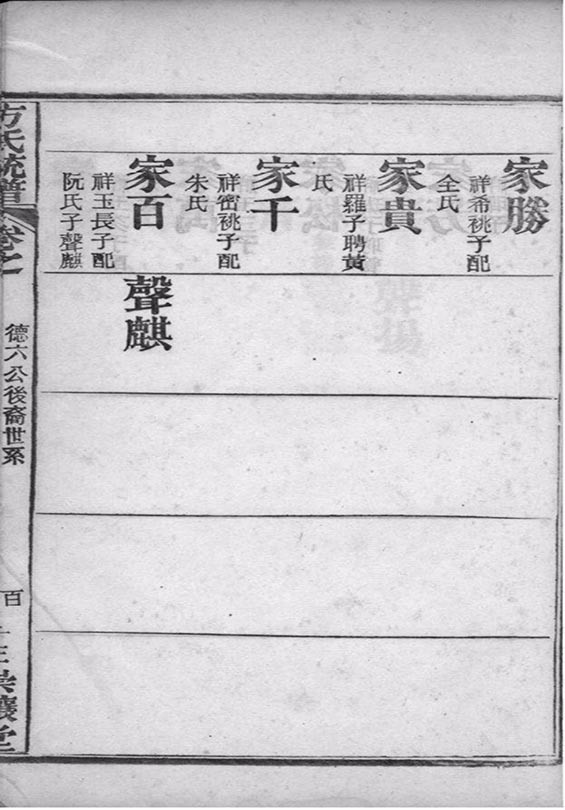 家勝
祥希祧子配
全氏
家貴
祥羅子聘黃
氏
家千
祥密祧子配
朱氏
家百
祥玉長子配
阮氏子聲麒
聲麒
方氏統譜
卷之
德六公後裔世系
百